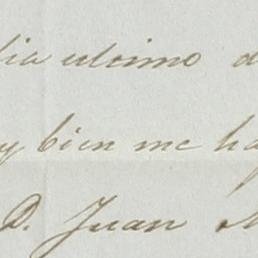 dia ultimo d
y bien me ha
D. Juan